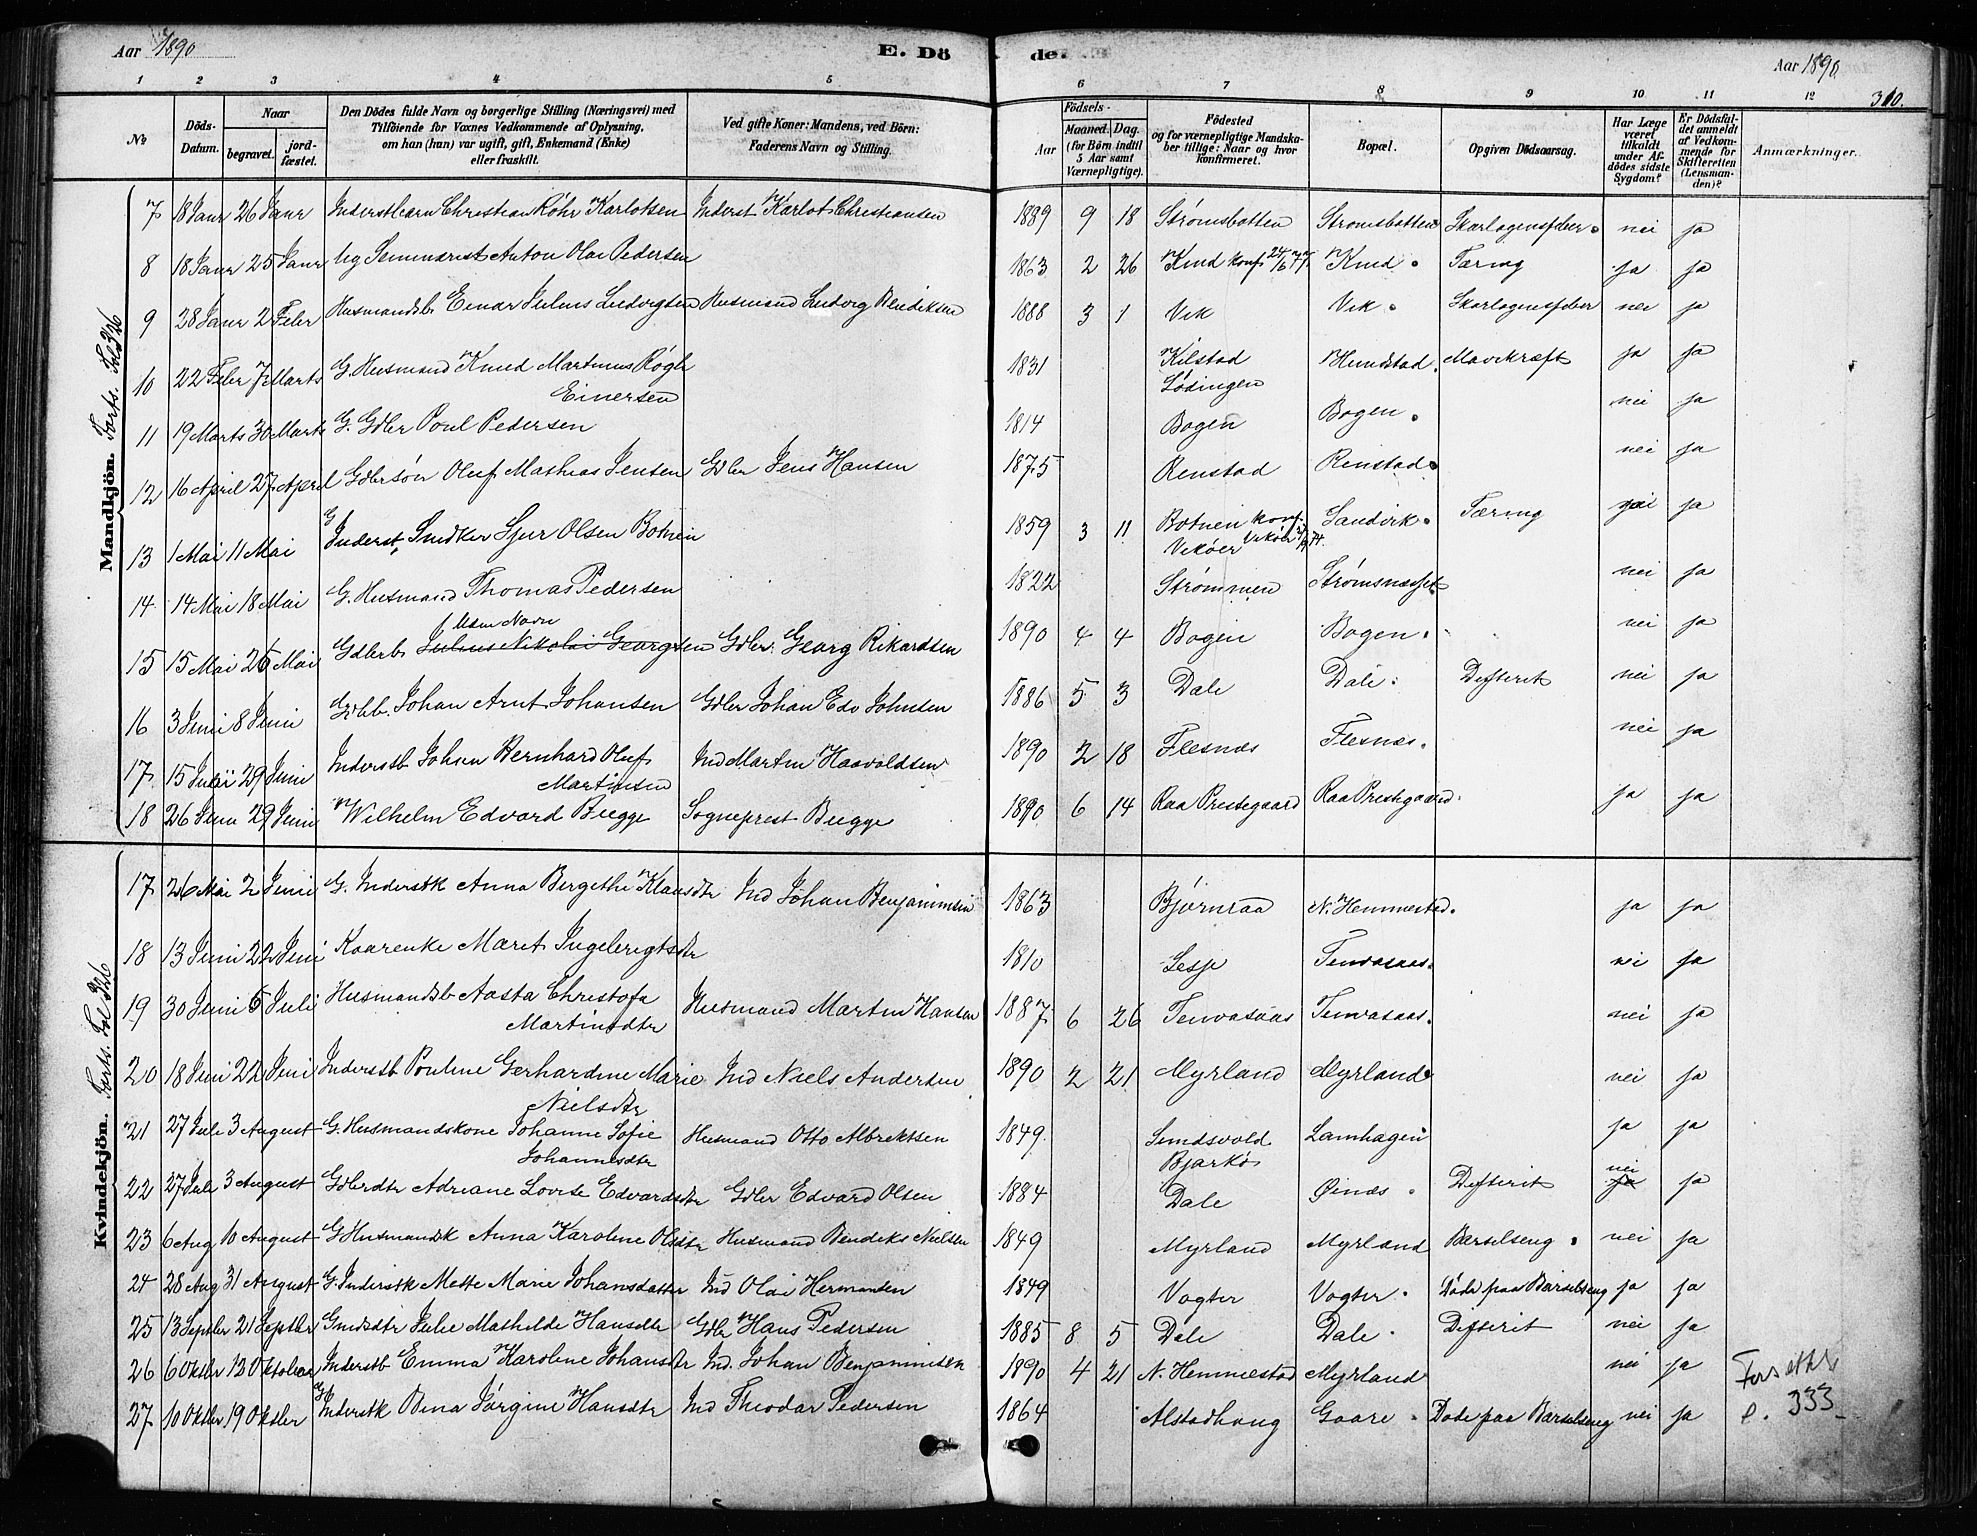 Aar 1890 E. Döde. Aar 1890
1 2 3 4 5 6 7 8 9 10 11 12 310.
No
Döds-Datum.
Naar
begravet.
jord-fæstet.
Den Dödes fulde Navn og borgerlige Stilling (Næringsvei) med
Tilföiende for Voxnes Vedkommende af Oplysning,
om han (hun) var ugift, gift, Enkemand (Enke)
eller fraskilt.
Ved gifte Koner: Mandens, ved Börn:
Faderens Navn og Stilling.
Födsels-
Aar
Maaned.
Dag.
(for Börn indtil
5 Aar samt
Værnepligtige).
Födested
og for værnepligtige Mandska-
ber tillige: Naar og hvor
konfirmeret.
Bopæl.
Opgiven Dödsaarsag.
Har Læge
været
tilkaldt
under Af-
dödes sidste
Sygdom?
Er Dödsfal-
det anmeldt
af Vedkom-
mende for
Skifteretten
(Lensman-
den)?
Anmærkninger.
Mandkjön. Forts. Fol 326
7 18 Janr 26 Janr Inderstbarn Christian Röhr Karlotsen Inderst Karlot Christiansen 1889 9 18 Strømsbotten Strømsbotten Skarlagensfeber nei ja
8 18 Janr 25 Janr Ug Seminarist Anton Olai Pedersen 1863 2 26 Kind konf 24/6 77 Kind Tæring ja ja
9 28 Janr 2 Febr Husmandsb Einar Julius Ludvigsen Husmand Ludvig Bendiksen 1888 3 1 Vik Vik Skarlagensfeber nei ja
10 22 Febr 7 Marts G. Husmand Knud Martinus Røgh
Einersen 1831 Kilstad
Lødingen Hundstad Mavekræft ja ja
11 19 Marts 30 Marts G. Gdbr Poul Pedersen 1814 Bogen Bogen nei ja
12 16 April 27 April Gdbrsön Oluf Mathias Jensen Gdbr Jens Hansen 1875 Renstad Renstad nei ja
13 1 Mai 11 Mai G Inderst, Snedker Sjur Olsen Botnen 1859 3 11 Botnen konf.
Vikøer Sandvik Tæring nei ja
14 14 Mai 18 Mai G. Husmand Thomas Pedersen 1822 Strømmen Strømsnesset nei ja
15 15 Mai 26 Mai Gdbrb Uden Navn
Julius Nikolai Georgsen Gdbr. Georg Rikardsen 1890 4 4 Bogen Bogen nei ja
16 3 Juni 8 Juni Gdbb. Johan Arnt Johansen Gdbr Johan Edv Johnsen 1886 5 3 Dale Dale Difterit nei ja
17 15 Juni 29 Juni Inderstb Johan Bernhard Oluf
Martinsen Ind Martin Haavoldsen 1890 2 18 Flesnæs Flesnæs nei ja
18 26 Juni 29 Juni Wilhelm Edvard Bugge Sogneprest Bugge 1890 6 14 Raa Prestegaard Raa Prestegaard ja ja
Kvindekjön. Forts. Fol 326
17 26 Mai 2 Juni G. Inderstk Anna Bergethe Klausdtr Ind Johan Benjaminsen 1863 Bjørnraa N. Hemmestad ja ja
18 13 Juni 22 Juni Kaarenke Maret Ingebrigtsdtr 1810 Lesje Tenvasaas nei ja
19 30 Juni 6 Juli Husmandsb Aasta Christofa
Martinsdtr Husmand Martin Hansen 1887 6 26 Tenvasaas Tenvasaas nei ja
20 18 Juni 22 Juni Inderstb Pouline Gerhardine Marie
Nielsdtr Ind Niels Andersen 1890 2 21 Myrland Myrland nei ja
21 27 Juli 3 August G. Husmandskone Johanne Sofie
Johannesdtr Husmand Otto Albrektsen 1849 Sundsvold
Bjarkø Lamhagen ja ja
22 27 Juli 3 August Gdbrdtr Adriane Lovise Edvardsdtr Gdbr Edvard Olsen 1884 Dale Øinæs Difterit nei ja ja
23 6 Aug 10 August G Husmandsk Anna Karoline Olsdtr Husmand Bendiks Nielsen 1849 Myrland Myrland Barselseng nei ja
24 28 Aug 31 August G. Inderstk Mette Marie Johansdatter Ind Olai Hermansen 1849 Vogter Vogter Døde paa Barselseng ja ja
25 13 Septbr 21 Septbr Gmdsdtr Julie Mathilde Hansdtr Gdbr Hans Pedersen 1885 8 5 Dale Dale Difterit nei ja
26 6 Oktbr 12 Oktober Inderstb Emma Karoline Johansdtr Ind. Johan Benjaminsen 1890 4 21 N. Hemmestad Myrland nei ja
27 10 Oktbr 19 Oktbr G Inderstk Bina Jørgine Hansdtr Ind Theodor Pedersen 1864 Alstadhaug Gaare Døde paa Barselseng nei ja
Forsættes
p. 333